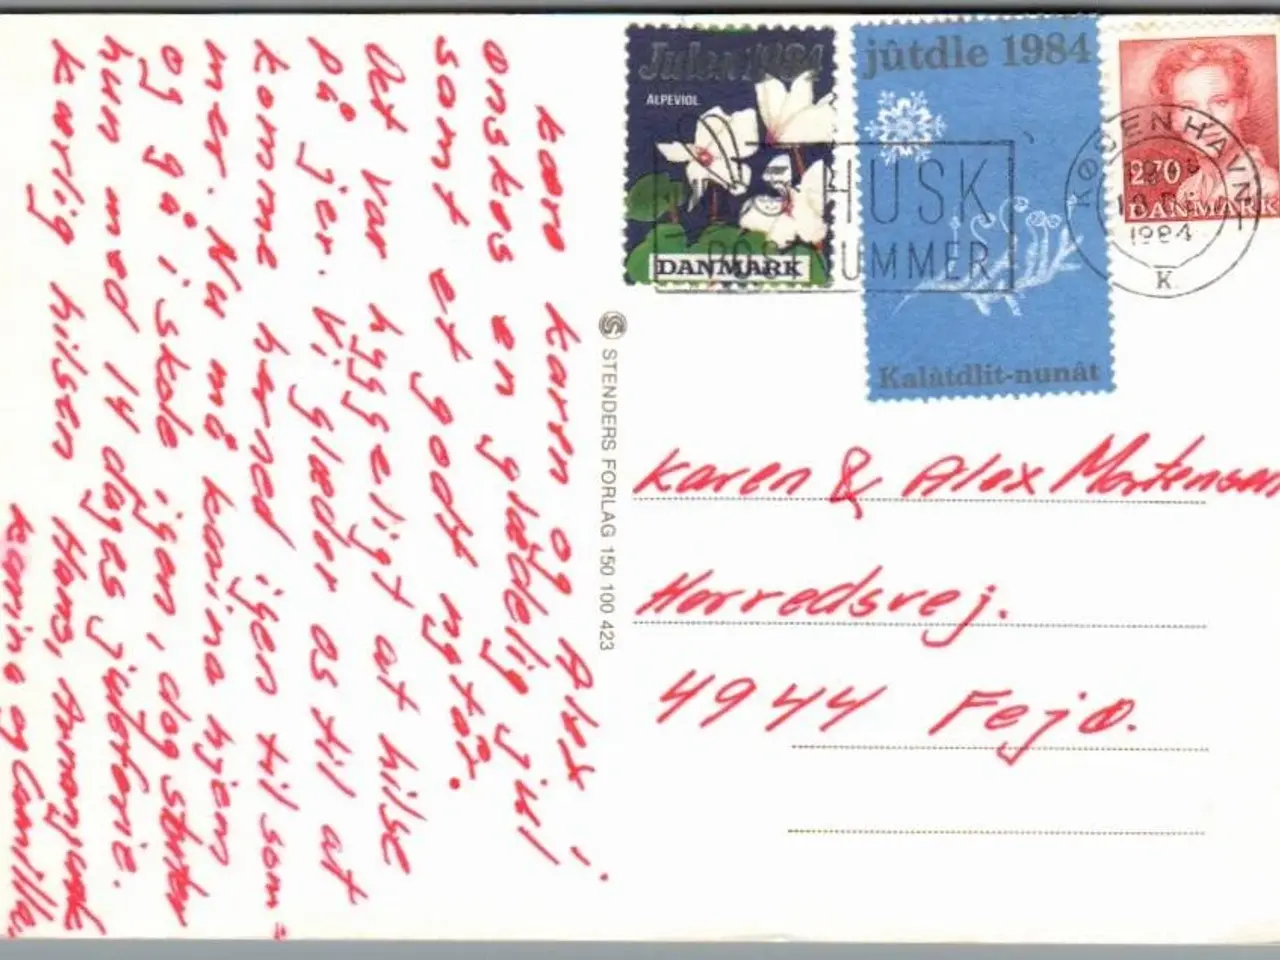 Kære Karen og Alex!
Onskes en glædelig jul
somt et godt nytår.
Det var hyggeligt at hilse
på jer. Vi glæder os til at
komme herned igen til som=
mer. Nu må karina hjem
og gå i skole igen, dog
hun mod 14 dages juleferie.
kærlig hilsen Hans,
karina og Camilla.
STENDERS FORLAG 150 100 423
Julen 1984
ALPEVIOL
DANMARK
jûtdle 1984
Kalâtdlit-nunât
2.70
DANMARK
HUSK
POSTNUMMER
KØBENHAVN
1984
K.
Karen & Alex Mortensen
Horredsvej.
4944 Fejø.